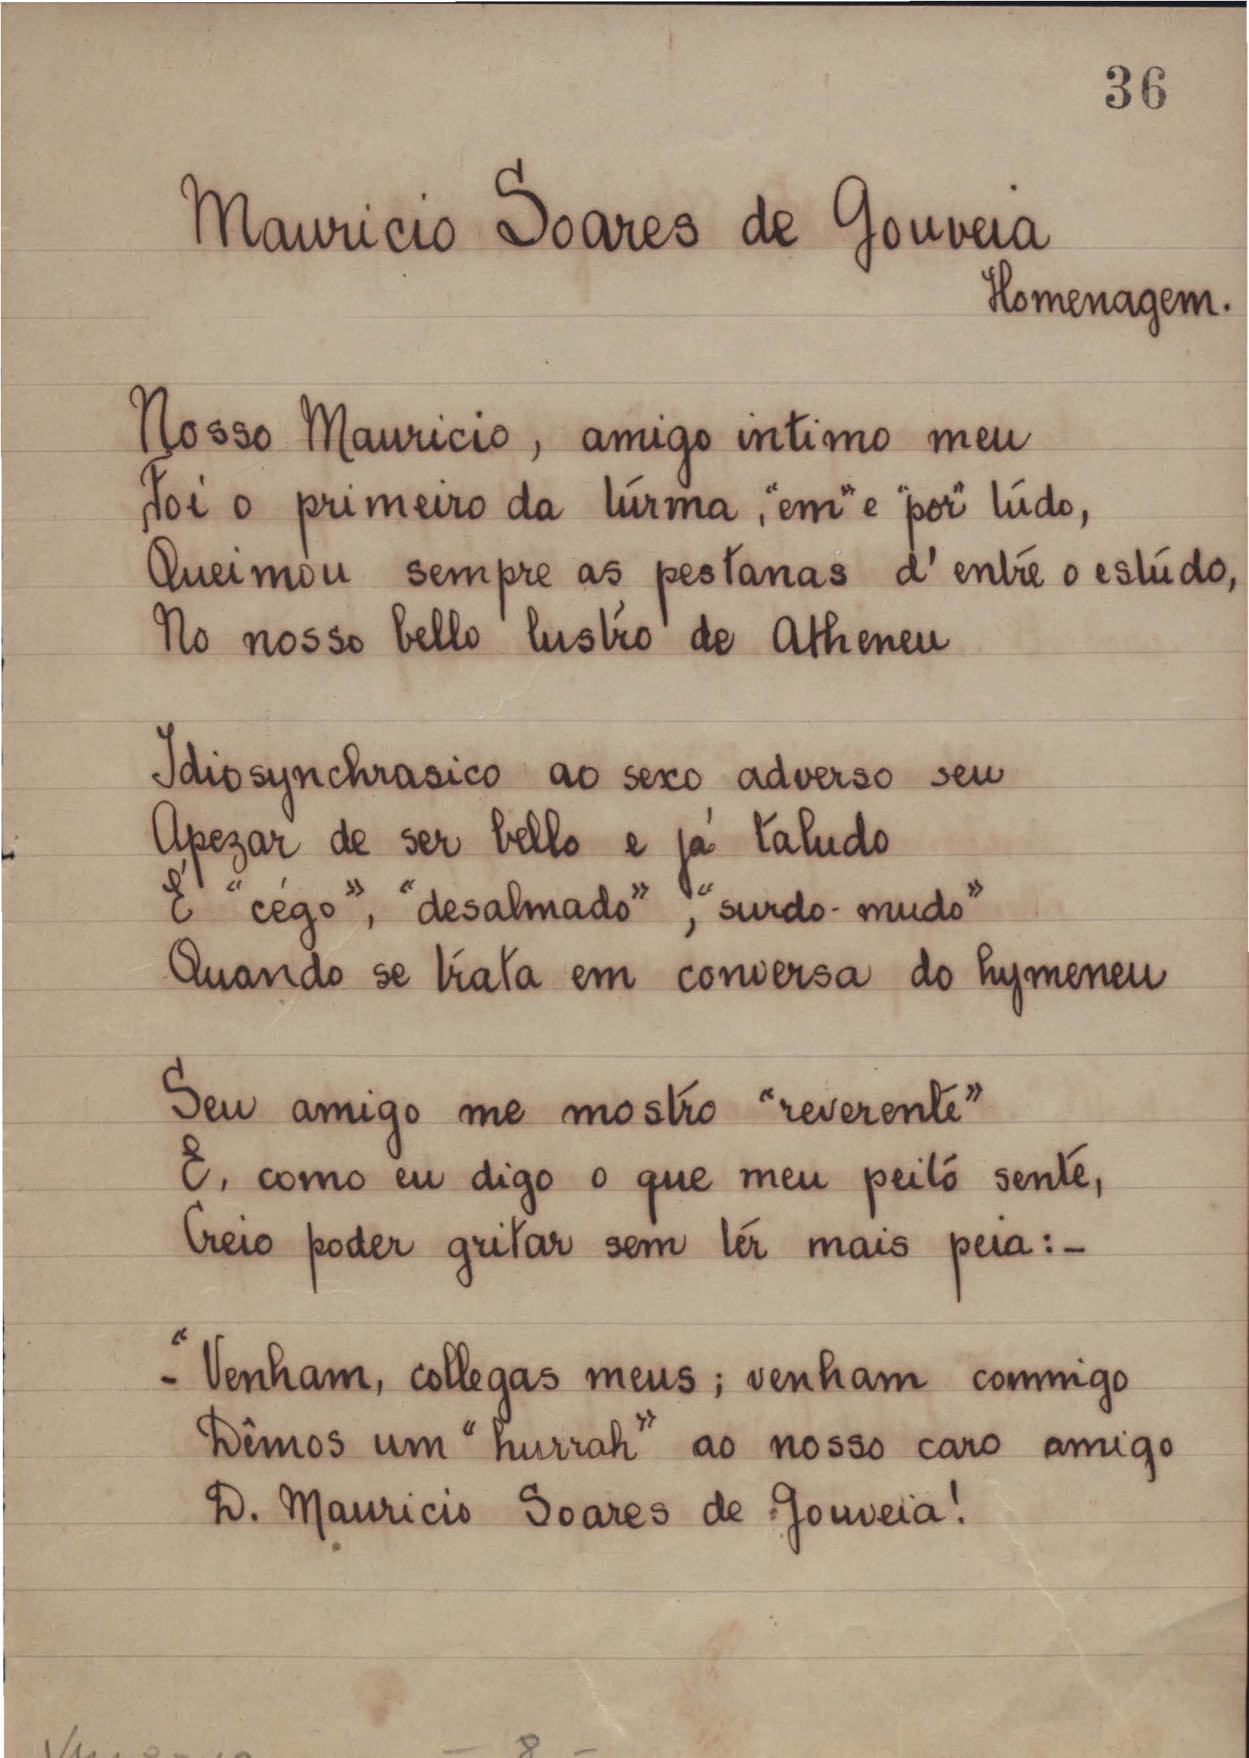 36
Mauricio Soares de Gouveia
Homenagem.
Nosso Mauricio, amigo intimo meu
Foi o primeiro da turma, "em" e "por" tudo,
Queimou sempre as pestanas d'entre o estudo,
No nosso bello lustro de Atheneu
Idiosynchrasico ao sexo adverso seu
Apezar de ser bello e já taludo
É "cégo", "desalmado", "surdo-mudo"
Quando se trata em conversa do hymeneu
Seu amigo me mostro "reverente"
E, como eu digo o que meu peito sente,
Creio poder gritar sem ter mais peia:-
-"Venham, collegas meus; venham commigo
Dêmos um "hurrah" ao nosso caro amigo
D. Mauricio Soares de Gouveia!
- 8 -